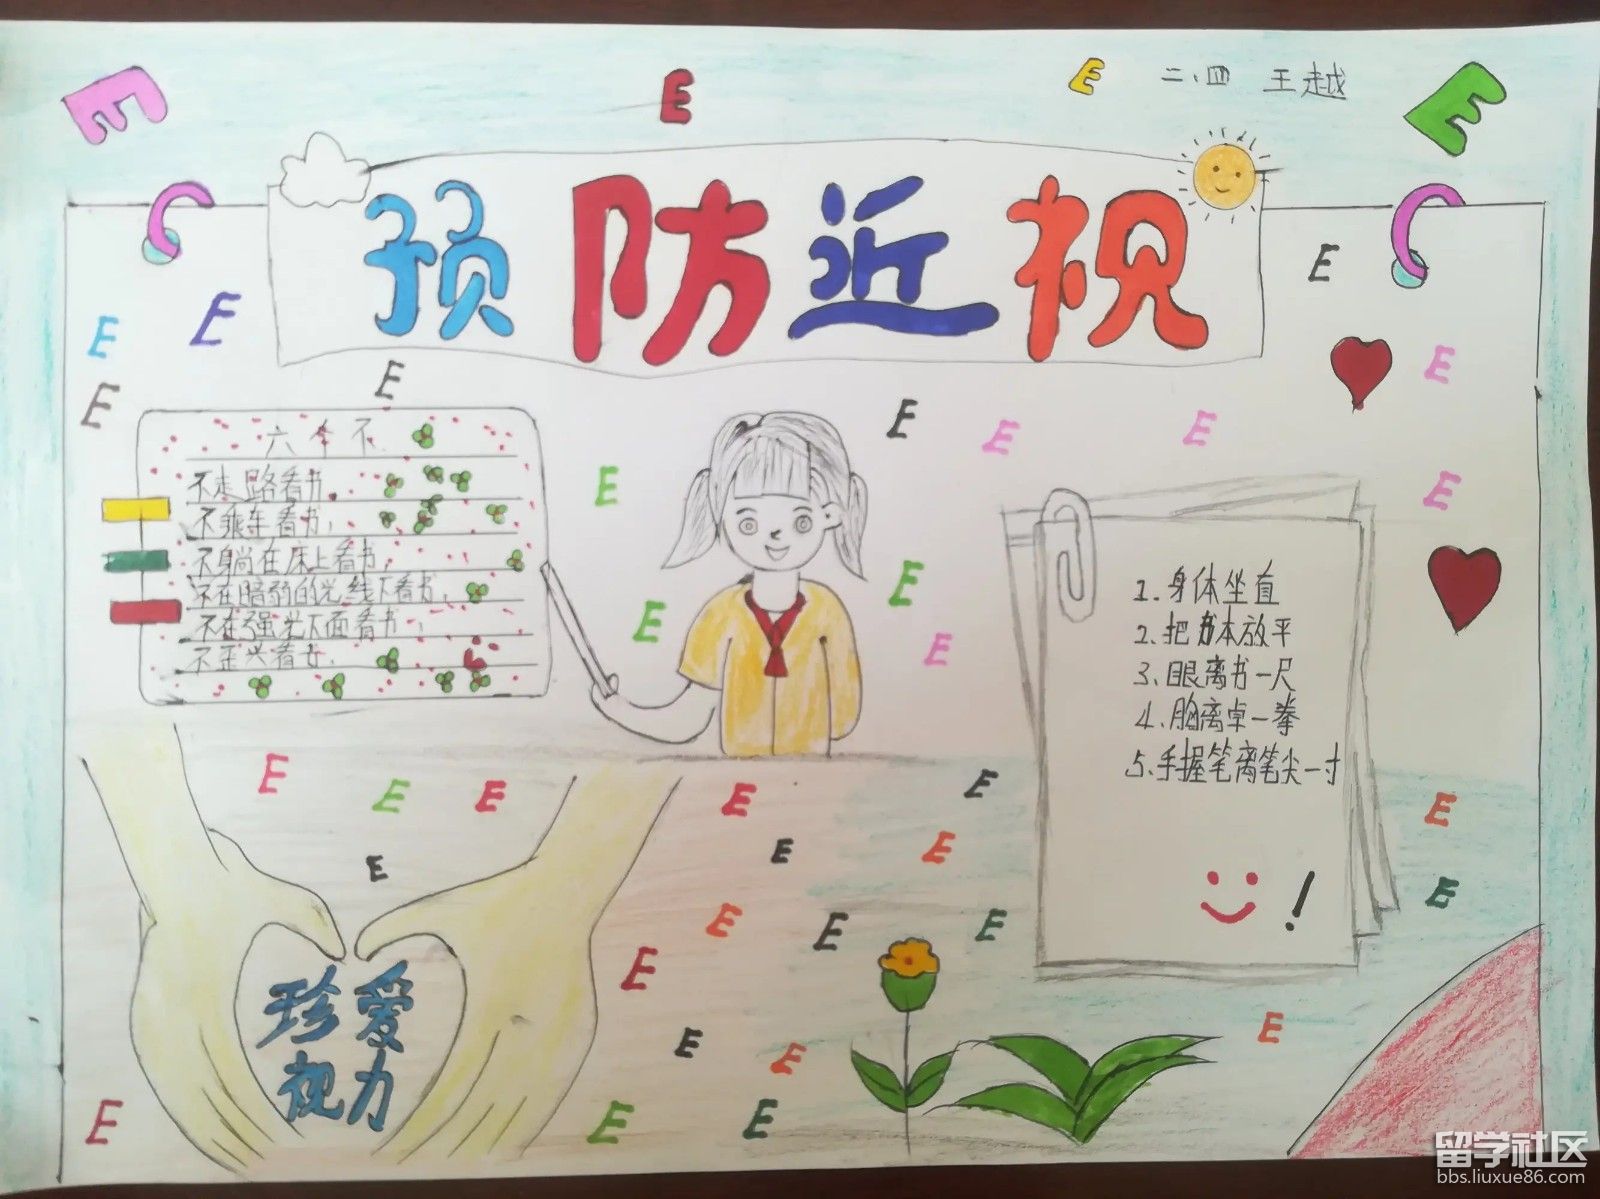 E
E
E
二.四 王越
E
预防近视
E
E
E
E
E
E
E
E
E
E
六个不
不走路看书,
不乘车看书,
不躺在床上看书,
不在暗弱的光线下看书,
不在强光下面看书,
不歪
E
E
E
E
E
E
1.身体坐直
2.把书本放平
3.眼离书一尺
4.胸离卓一拳
5.手握笔离笔尖一寸
!
E
E
E
E
E
E
E
E
E
E
E
E
E
E
珍爱
视力
E
E
E
E
E
E
留学社区
bbs.liuxue86.com